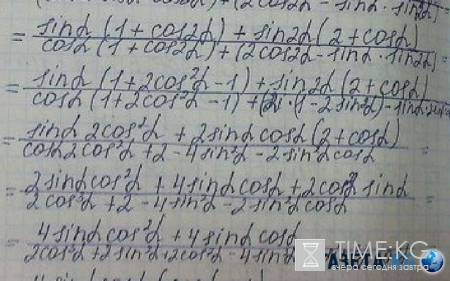 = sinα(1+cos2α)+sin2α(2+cosα) / cosα(1+cos2α)+(2cos2α-sinα·sin2α) =
= sinα(1+2cos²α-1)+sin2α(2+cosα) / cosα(1+2cos²α-1)+(2·(1-2sin²α)-sinα·
= sinα2cos²α+2sinαcosα(2+cosα) / cosα2cos²α+2-4sin²α-2sin²αcosα =
= 2sinαcos²α+4sinαcosα+2cos²αsinα / 2cos³α+2-4sin²α-2sin²αcosα =
= 4sinαcos²α+4sinαcosα / 2cos³α+2sin²α+2cos²α-4sin
TIME.KG
вчера сегодня завтра